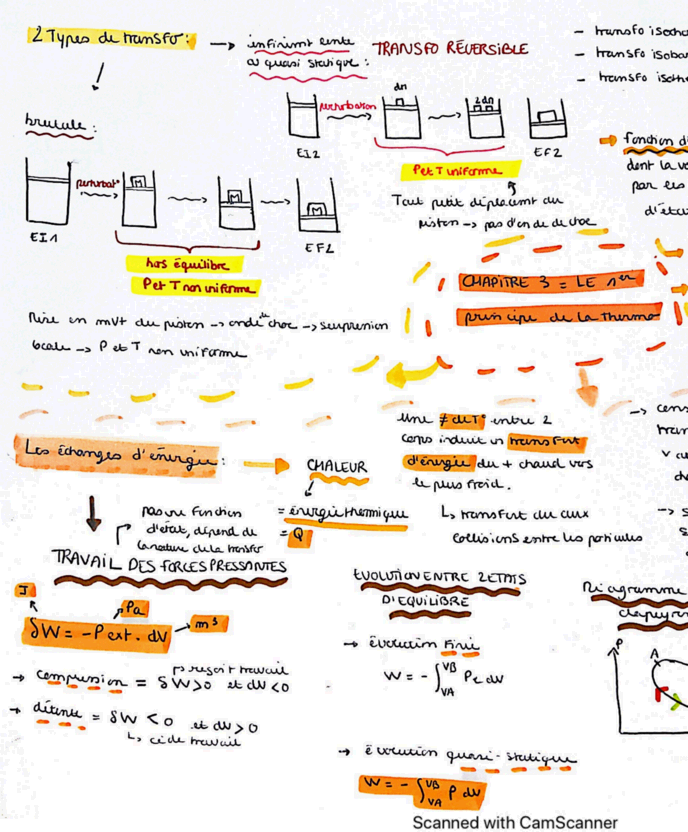 2 Types de transfo :
→ infiniment lente
ou quasi statique :
TRANSFO RÉVERSIBLE
- transfo isoch
- transfo isoba
- transfo isoth
brutale :
EI1
perturbat°
M
M
M
EF1
hors équilibre
P et T non uniforme
EI2
perturbation
dm
2dm
EF2
P et T uniforme
Tout petit déplacement du
piston → pas d'onde de choc
⇒ fonction d'
dont la va
par les
d'éta
Mise en mvt du piston → onde de choc → surpression
locale → P et T non uniforme
CHAPITRE 3 = LE 1er
principe de la thermo
Les échanges d'énergie :
CHALEUR
= énergie thermique
= Q
Une ≠ de T° entre 2
corps induit un transfert
d'énergie du + chaud vers
le plus froid.
↳ transfert dû aux
collisions entre les particules
pas une fonction
d'état, dépend de
la nature de la transfo
TRAVAIL DES FORCES PRESSANTES
J
Pa
δW = -P ext. dV → m³
→ compression = δW>0 et dV<0
↱ reçoit travail
→ détente = δW<0 et dV>0
↳ cède travail
EVOLUTION ENTRE 2 ETATS
D'EQUILIBRE
→ évolution finie
W = - ∫ VB VA Pe dV
→ évolution quasi-statique
W = - ∫ VB VA P dV
Diagramme
clapeyron
P
A
Scanned with CamScanner